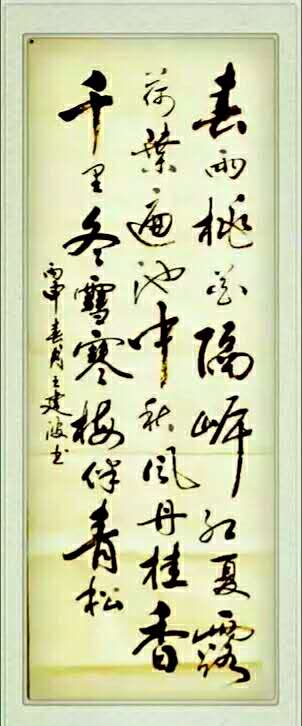 春雨桃花隔岸红夏露
荷叶遍池中秋风丹桂香
千里冬雪寒梅伴青松
丙申春月王建波书